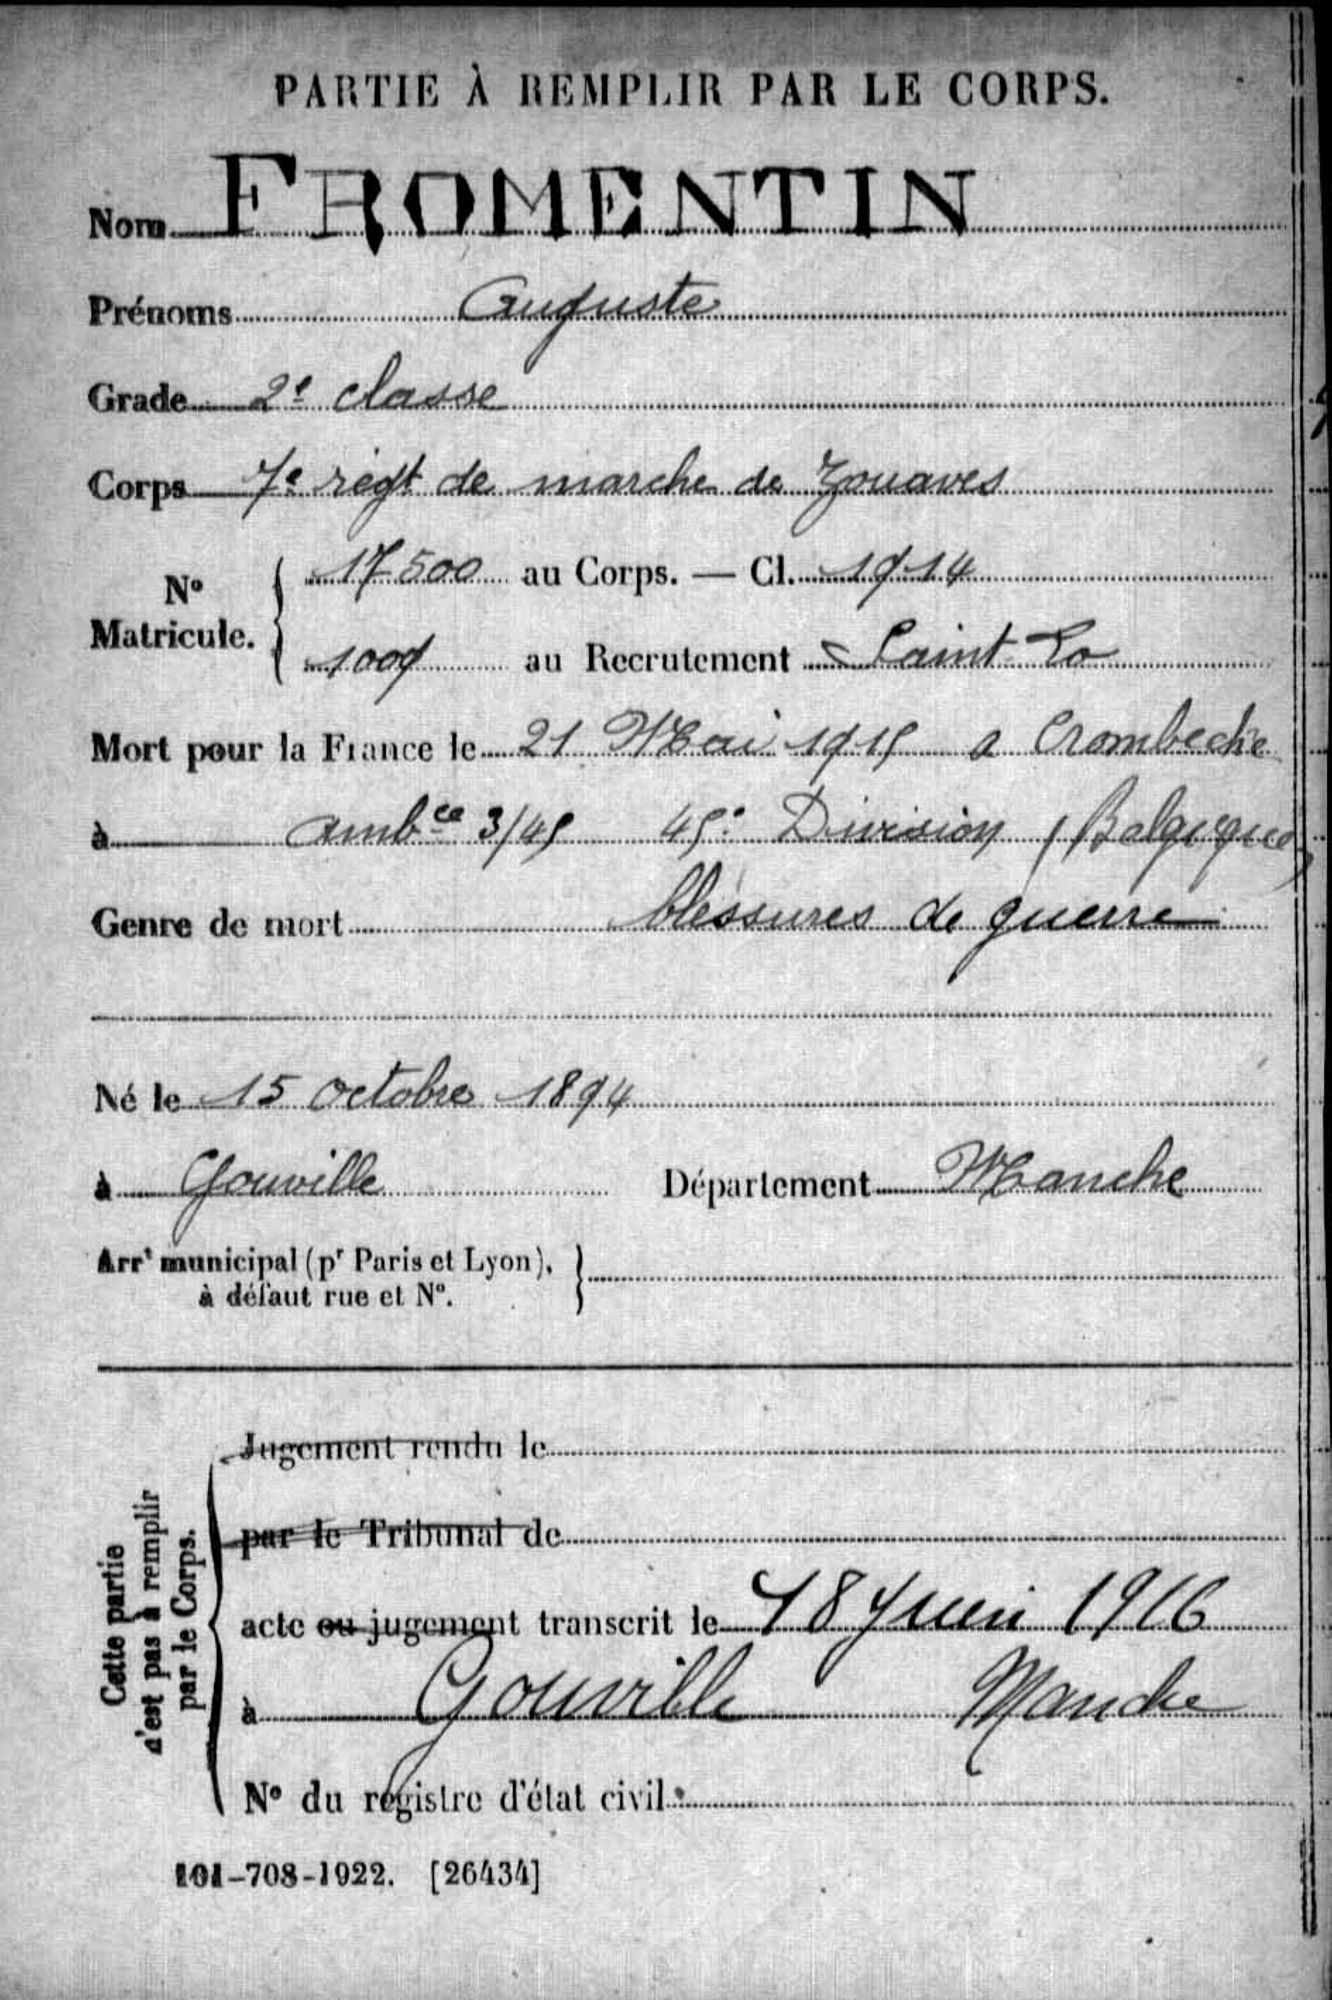 PARTIE À REMPLIR PAR LE CORPS.
Nom FROMENTIN
Prénoms Auguste
Grade 2e classe
Corps 7e régt de marche de Zouaves
N° Matricule. 17500 au Corps. — Cl. 1914
1009 au Recrutement Saint-Lo
Mort pour la France le 21 Mai 1915 a Crombecke
à ambce 3/45 45e Division (Belgique)
Genre de mort blessures de guerre
Né le 15 octobre 1894
à Gouville Département Manche
Arrt municipal (pr Paris et Lyon),
à défaut rue et N°.
Cette partie
n'est pas à remplir
par le Corps.
Jugement rendu le
par le Tribunal de
acte ou jugement transcrit le 18 Juin 1916
à Gouville Manche
N° du registre d'état civil
101-708-1922. [26434]